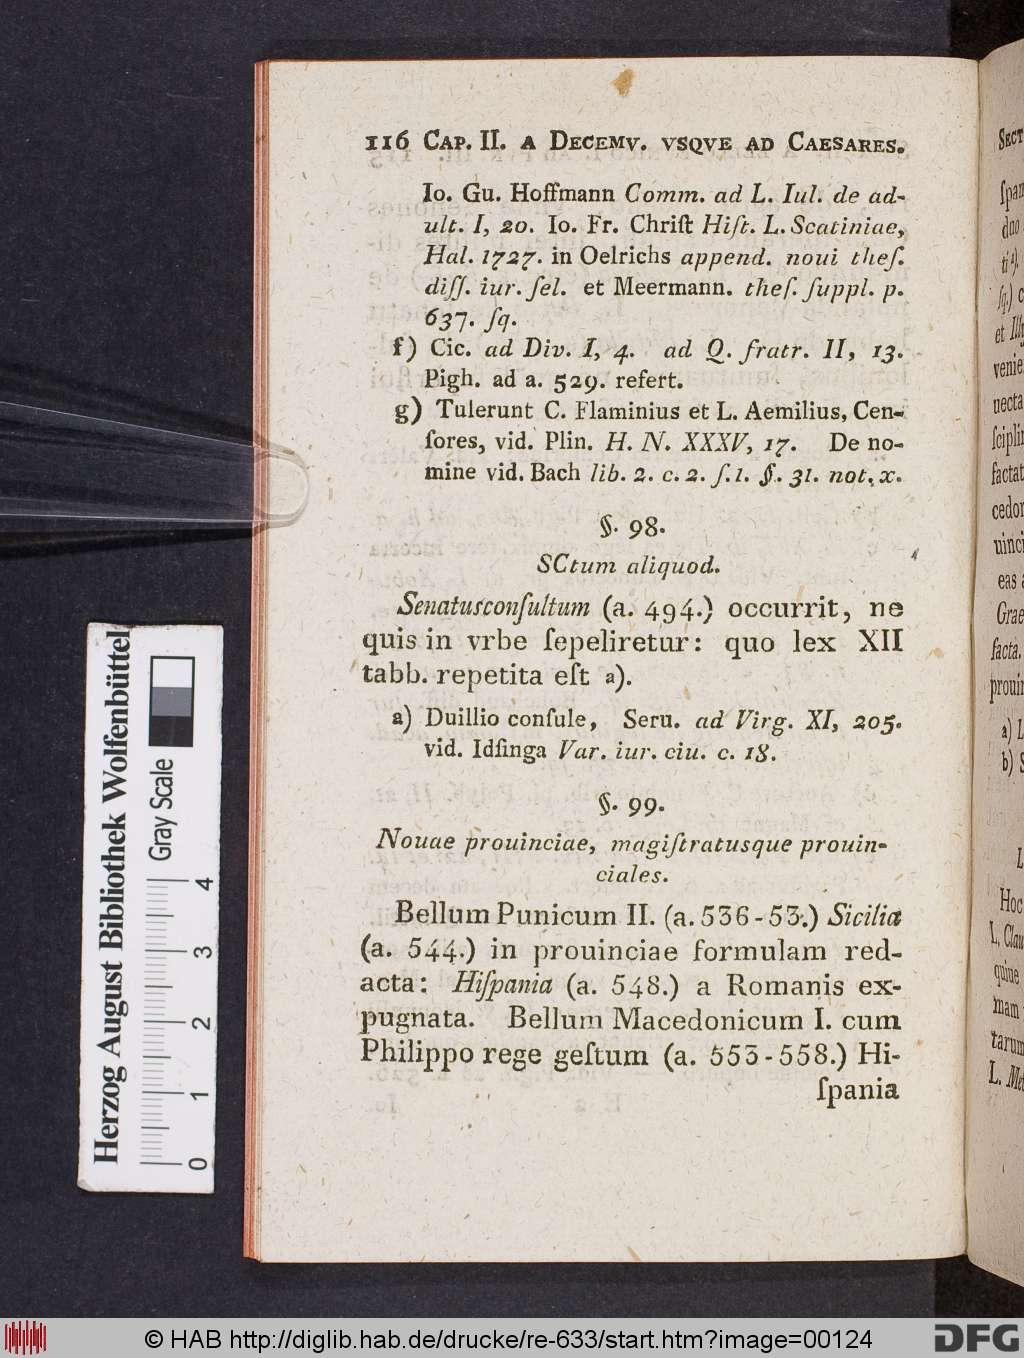 116 CAP. II. A DECEMV. VSQVE AD CAESARES.
Io. Gu. Hoffmann Comm. ad L. Iul. de ad-
ult. I, 20. Io. Fr. Chriſt Hiſt. L. Scatiniae,
Hal. 1727. in Oelrichs append. noui theſ.
diſſ. iur. ſel. et Meermann. theſ. ſuppl. p.
637. ſq.
f) Cic. ad Div. I, 4. ad Q. fratr. II, 13.
Pigh. ad a. 529. refert.
g) Tulerunt C. Flaminius et L. Aemilius, Cen-
ſores, vid. Plin. H. N. XXXV, 17. De no-
mine vid. Bach lib. 2. c. 2. ſ. 1. §. 31. not. x.
§. 98.
SCtum aliquod.
Senatusconſultum (a. 494.) occurrit, ne
quis in vrbe ſepeliretur: quo lex XII
tabb. repetita eſt a).
a) Duillio conſule, Seru. ad Virg. XI, 205.
vid. Idſinga Var. iur. ciu. c. 18.
§. 99.
Nouae prouinciae, magiſtratusque prouin-
ciales.
Bellum Punicum II. (a. 536-53.) Sicilia
(a. 544.) in prouinciae formulam red-
acta: Hiſpania (a. 548.) a Romanis ex-
pugnata. Bellum Macedonicum I. cum
Philippo rege geſtum (a. 553-558.) Hi-
ſpania
SECT
ſpan
dno
ti
ſq.) c
et Illy
venie
uecta
ſciplin
factat
cedon
uinci
eas a
Grae
facta.
prouin
a) L
b) S
L
Hoc
L. Clau
quiue
mam
tarum
L. Met
Herzog August Bibliothek Wolfenbüttel
Gray Scale
0 1 2 3 4
© HAB http://diglib.hab.de/drucke/re-633/start.htm?image=00124
DFG